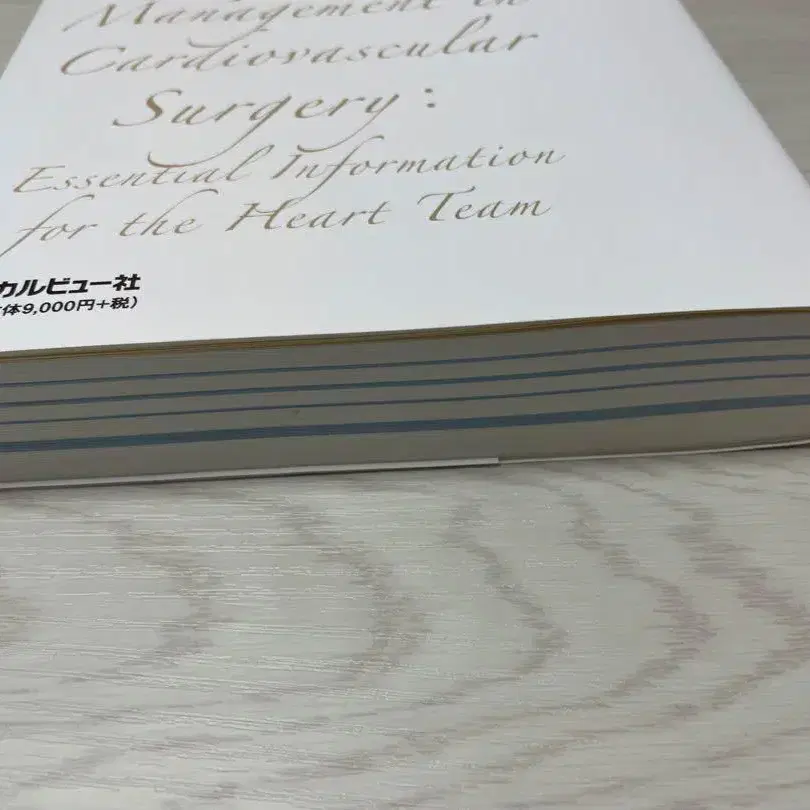 Management in
Cardiovascular
Surgery:
Essential Information
for the Heart Team
カルビュー社
体9,000円+税)